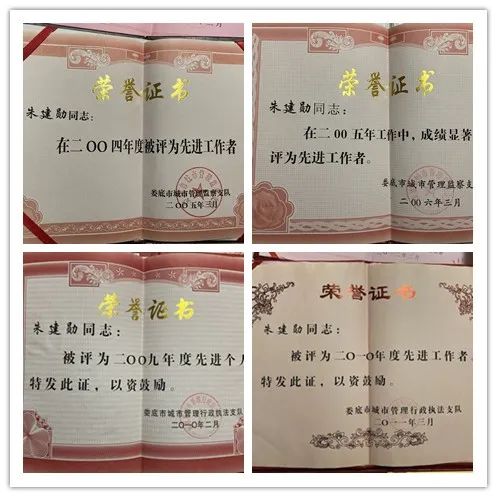 荣誉证书
朱建勋同志：
在二00四年度被评为先进工作者
娄底市城市管理监察支队
二00五年三月
荣誉证书
朱建勋同志：
在二00五年工作中，成绩显著
评为先进工作者。
娄底市城市管理监察支
二00六年三月
荣誉证书
朱建勋同志：
被评为二00九年度先进个人
特发此证，以资鼓励。
娄底市城市管理行政执法支队
二0一0年二月
荣誉证书
朱建勋同志：
被评为二0一0年度先进工作者
特发此证，以资鼓励。
娄底市城市管理行政执法支队
二0一一年三月